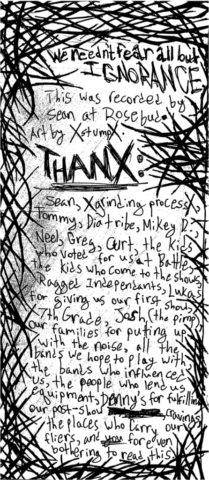 We needn't fear all but
IGNORANCE
This was recorded by
Sean at Rosebud.
Art by Xstumpx
THANX:
Sean, Xgrindingprocessx,
Tommy, Diatribe, Mikey D.,
Neel, Greg, Curt, the kids
who voted for us at Battle,
The kids who come to the shows,
Ragged Independants, Lukas
for giving us our first show,
7th Grade, Josh (the pimp),
our families for putting up
with the noise, all the
bands we hope to play with
the bands who influenced
us, the people who lend us
equipment, Denny's for fulfilling
our post-show cravings,
the places who carry our
fliers, and you for even
bothering to read this